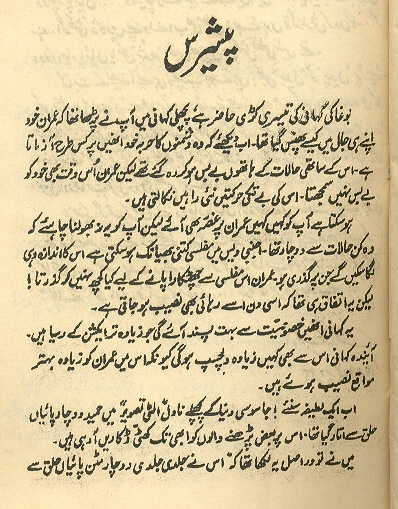 پیشرس
بوغا کی کہانی کی تیسری کڑی حاضر ہے، پچھلی کہانی میں آپ نے پڑھا تھا کہ عمران خود
اپنے ہی جال میں کیسے پھنس گیا تھا۔ اب دیکھئے کہ وہ دشمنوں کا حربہ خود انھیں پر کس طرح آزماتا
ہے۔ اس کے ساتھی حالات کے ہاتھوں بے بس ہو کر رہ گئے تھے لیکن عمران اُس وقت بھی خود کو
بے بس نہیں سمجھتا۔ اس کی بے تکی حرکتیں نئی راہیں نکالتی ہیں۔
ہو سکتا ہے آپ کو کہیں کہیں عمران پر غصہ بھی آئے لیکن آپ کو یہ نہ بھولنا چاہئے کہ
وہ کن حالات سے دوچار تھا۔ اجنبی دیس میں مفلسی کتنی بھیانک ہو سکتی ہے اس کا اندازہ وہی
لگا سکیں گے جن پر گذری ہو۔ عمران اس مفلسی سے چھٹکارا پانے کے لیے کیا کچھ نہیں کر گذرتا!
لیکن یہ اتفاق ہی تھا کہ اسی دن اسے رہائی بھی نصیب ہو جاتی ہے۔
یہ کہانی انھیں خصوصیت سے بہت پسند آئے گی جو زیادہ تر ایکشن کے رسیا ہیں۔
آئندہ کہانی اس سے بھی کہیں زیادہ دلچسپ ہو گی کیونکہ اس میں عمران کو زیادہ بہتر
مواقع نصیب ہوئے ہیں۔
اب ایک لطیفہ سنئے! جاسوسی دنیا کے پچھلے ناول "الٹی تصویر" میں حمید دو چار پائیاں
حلق سے اتار گیا تھا۔ اس پر بعض پڑھنے والوں کو ابھی تک کھٹی ڈکاریں آ رہی ہیں۔
میں نے تو دراصل یہ لکھا تھا کہ "اس نے جلدی جلدی دو چار مٹن پائیاں حلق سے